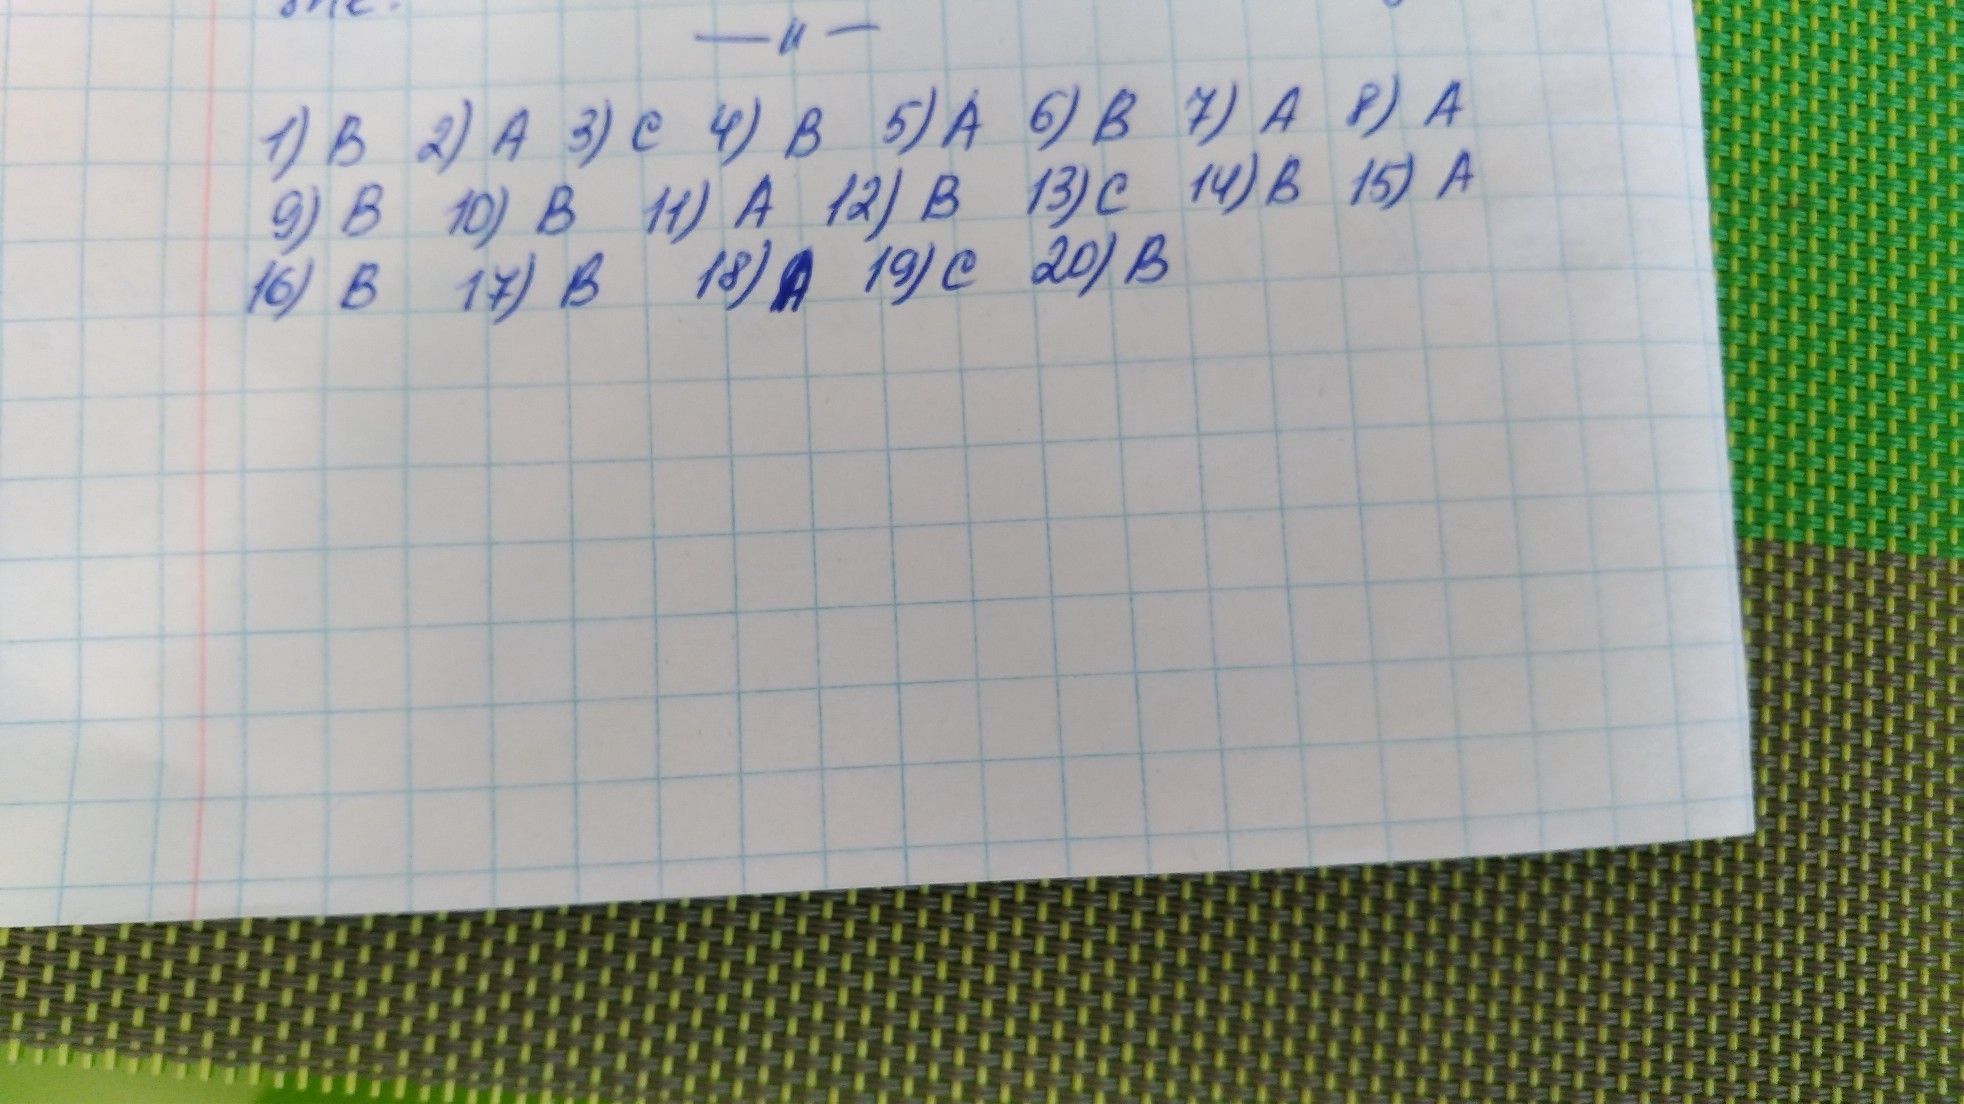 — " —
1) B 2) A 3) C 4) B 5) A 6) B 7) A 8) A
9) B 10) B 11) A 12) B 13) C 14) B 15) A
16) B 17) B 18) A 19) C 20) B